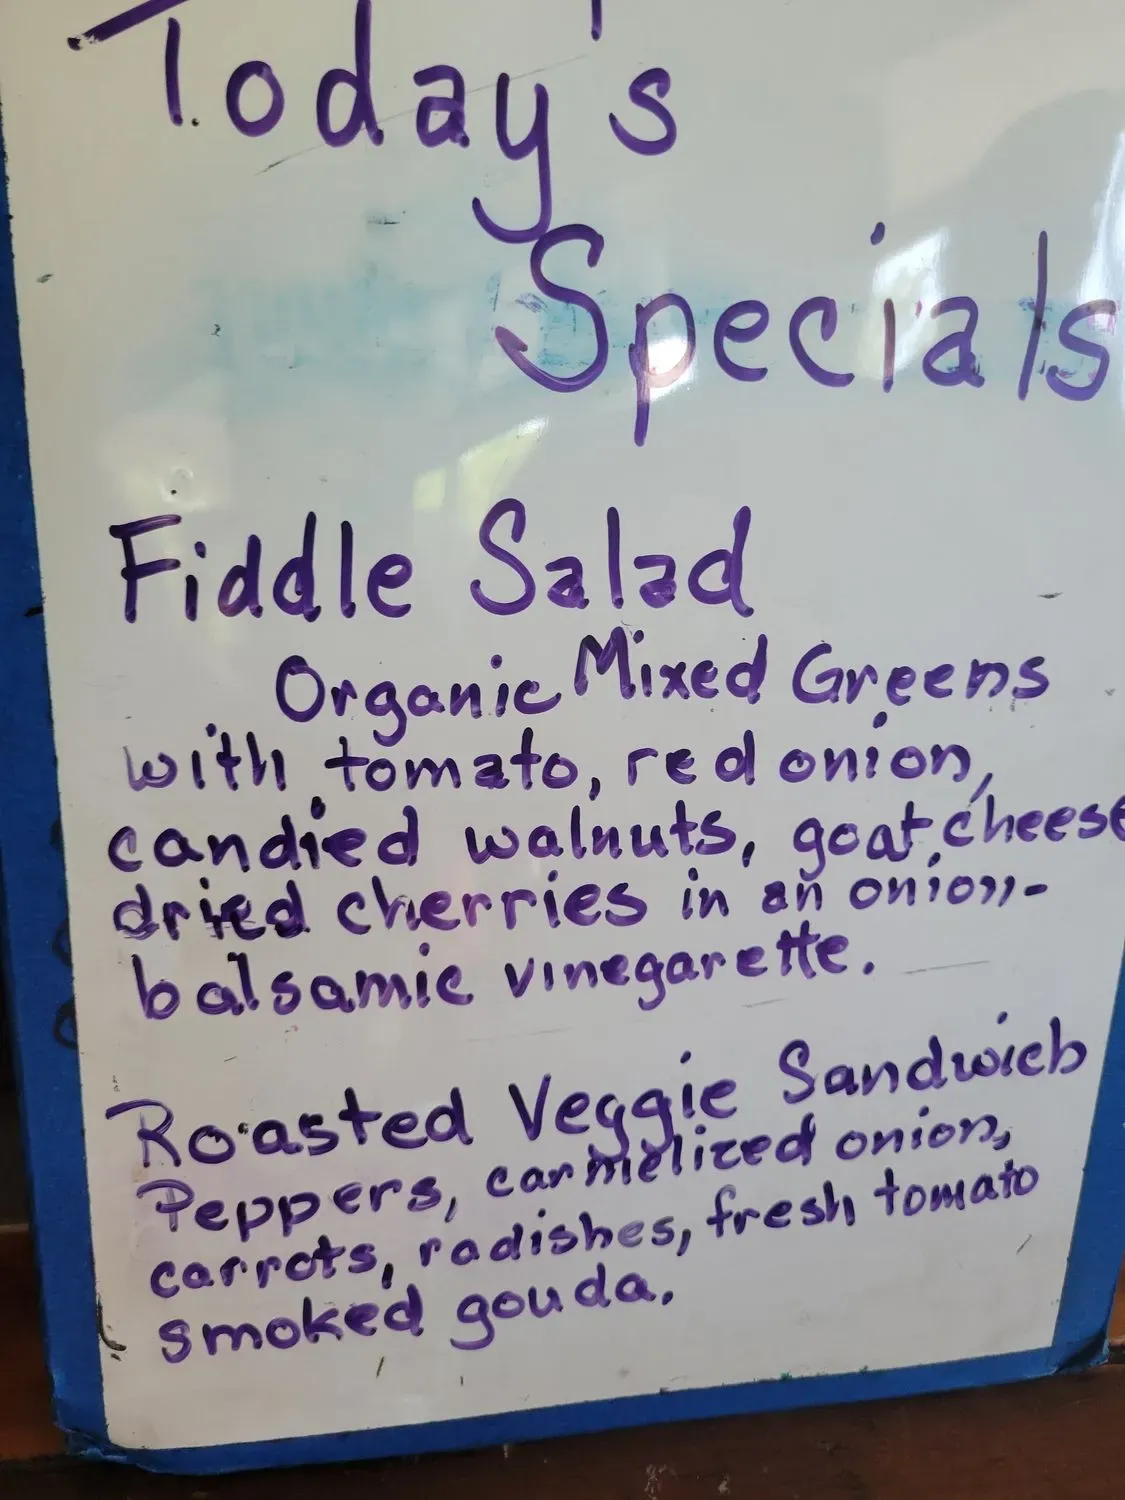 Today's
Specials
Fiddle Salad
Organic Mixed Greens
with tomato, red onion,
candied walnuts, goat cheese
dried cherries in an onion-
balsamic vinegarette.
Roasted Veggie Sandwich
Peppers, carmelized onion,
carrots, radishes, fresh tomato
smoked gouda.